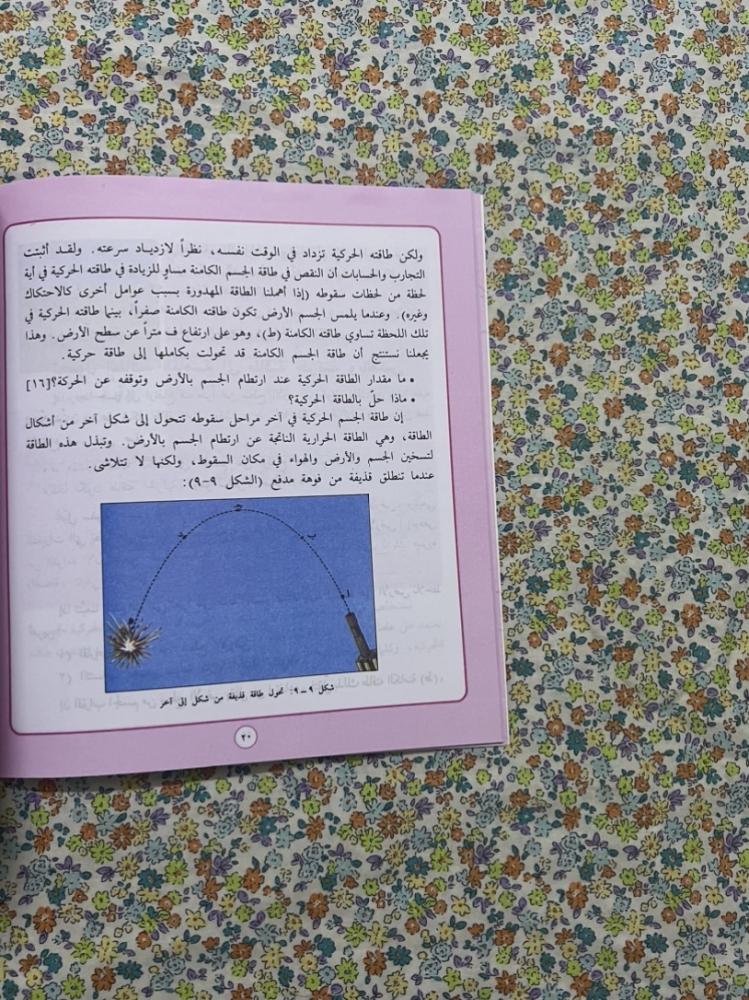 ولكن طاقته الحركية تزداد في الوقت نفسه، نظراً لازديـاد سرعته. ولقـد أثبتت
التجارب والحسابات أن النقص في طاقة الجسم الكامنة مساوٍ للزيادة في طاقته الحركية في أية
لحظة من لحظات سقوطه (إذا أهملنا الطاقة المهدورة بسبب عوامل أخرى كالاحتكاك
وغيره). وعندما يلمس الجسم الأرض تكون طاقته الكامنة صفراً، بينما طاقته الحركية في
تلك اللحظة تساوي طاقته الكامنة (ط)، وهو على ارتفاع ف متراً عن سطح الأرض. وهذا
يجعلنا نستنتج أن طاقة الجسم الكامنة قد تحولت بكاملها إلى طاقة حركية.
• ما مقدار الطاقة الحركية عند ارتطام الجسم بالأرض وتوقفه عن الحركة؟[١٦]
• ماذا حلّ بالطاقة الحركية؟
إن طاقة الجسم الحركية في آخر مراحل سقوطه تتحول إلى شكل آخر من أشكال
الطاقة، وهي الطاقة الحرارية الناتجة عن ارتطام الجسم بالأرض. وتبذل هذه الطاقة
لتسخين الجسم والأرض والهواء في مكان السقوط، ولكنها لا تتلاشى.
عندما تنطلق قذيفة من فوهة مدفع (الشكل ٩-٩):
شكل ٩ – ٩: تحول طاقة قذيفة من شكل إلى آخر
٢٠